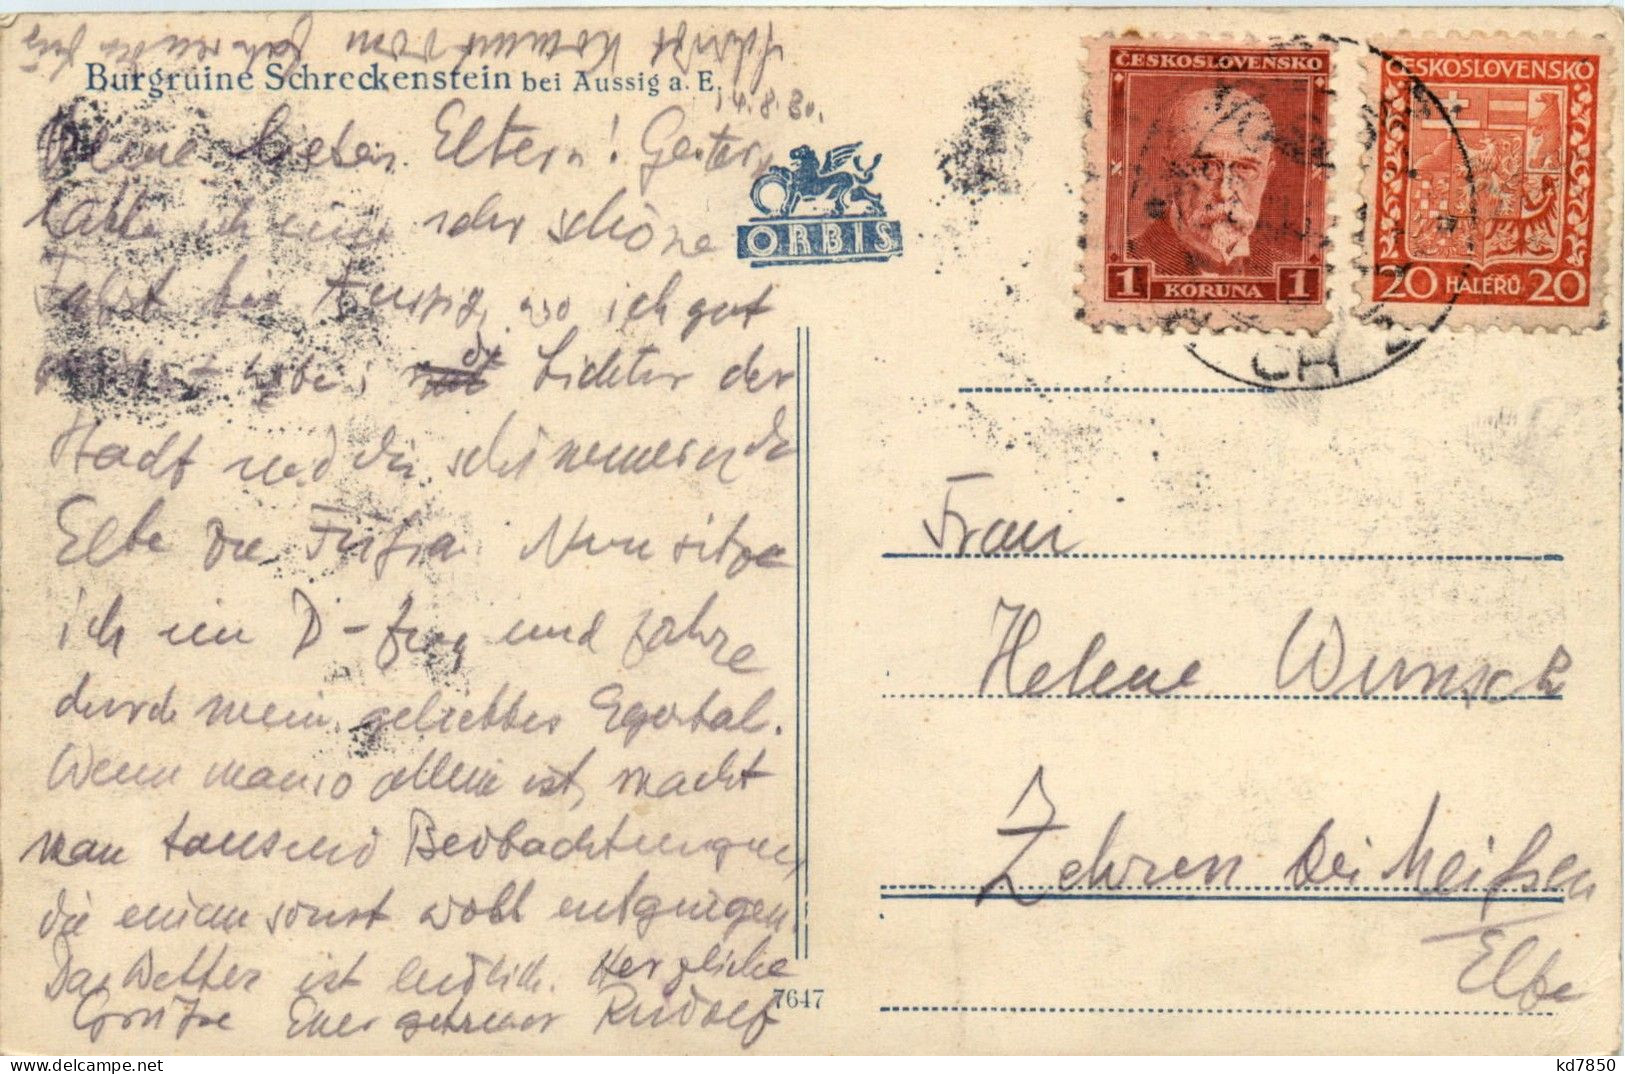 Schrift kommt vom Fahren
Burgruine Schreckenstein bei Aussig a. E.
14.8.30.
Meine lieben Eltern! Gestern
hatte ich eine sehr schöne
Fahrt bis Aussig, wo ich gut
habe, die Lichter der
Stadt und die
Elbe Nun sitze
ich im D-Zug und fahre
durch mein geliebtes Egertal.
Wenn man so allein ist, macht
man tausend Beobachtungen,
die einem sonst wohl entgingen.
Das Wetter ist leidlich. Herzliche
Grüße Euer getreuer Rudolf
ORBIS
7647
ČESKOSLOVENSKO
1 KORUNA 1
ČESKOSLOVENSKO
20 HALÉŘŮ 20
CH
Frau
Helene Wunsch
Zehren bei Meißen
Elbe
kd7850